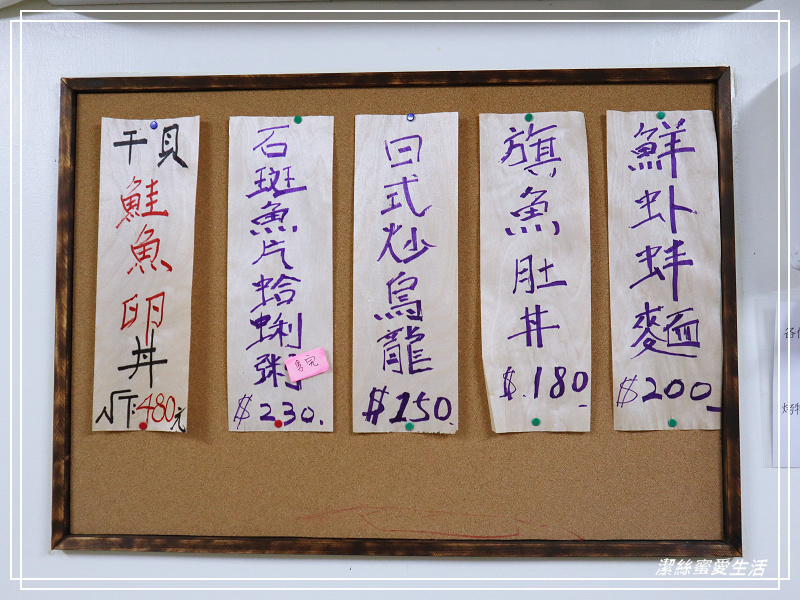 鮮虾蚌麵
$200
旗魚肚丼
$.180
日式炒烏龍
$250.
石斑魚片蛤蜊粥
售完
$230.
干貝
鮭魚卵丼
NT:480元
潔絲蜜愛生活